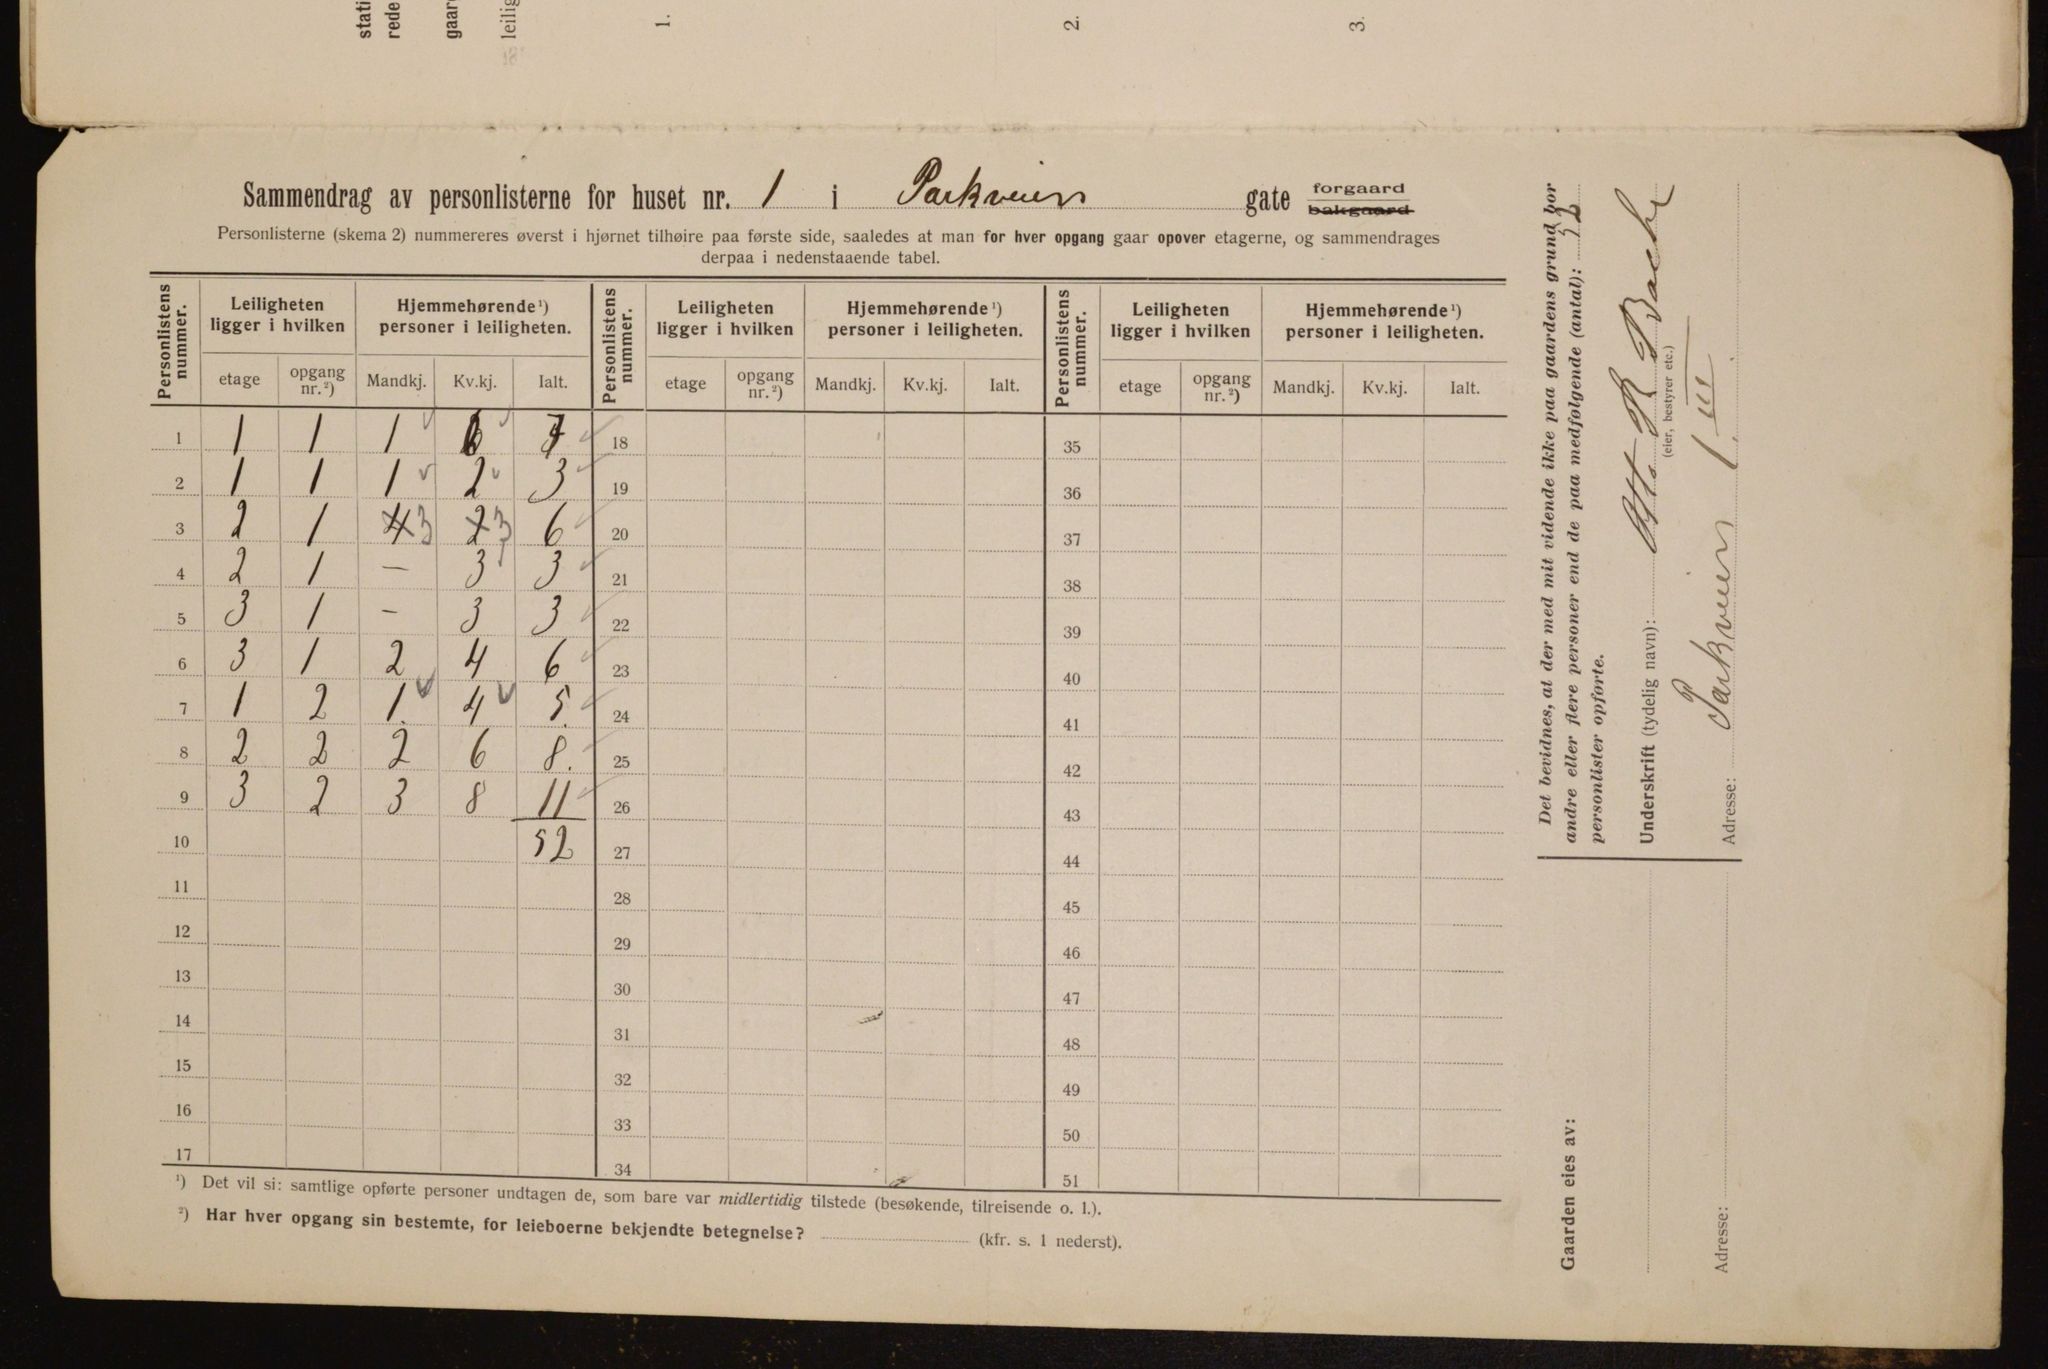 stati
rede
gaard
leilig
1.
2.
3.
Sammendrag av personlisterne for huset nr. 1 i Parkveien gate forgaard bakgaard
Personlisterne (skema 2) nummereres øverst i hjørnet tilhøire paa første side, saaledes at man for hver opgang gaar opover etagerne, og sammendrages
derpaa i nedenstaaende tabel.
Personlistens nummer. Leiligheten ligger i hvilken Hjemmehørende ¹) personer i leiligheten. Personlistens nummer. Leiligheten ligger i hvilken Hjemmehørende ¹) personer i leiligheten. Personlistens nummer. Leiligheten ligger i hvilken Hjemmehørende ¹) personer i leiligheten.
etage opgang nr. ²) Mandkj. Kv.kj. Ialt. etage opgang nr. ²) Mandkj. Kv.kj. Ialt. etage opgang nr. ²) Mandkj. Kv.kj. Ialt.
1 1 1 1 6 7 18 35
2 1 1 1 2 3 19 36
3 2 1 4 3 2 3 6 20 37
4 2 1 — 3 3 21 38
5 3 1 - 3 3 22 39
6 3 1 2 4 6 23 40
7 1 2 1. 4 5. 24 41
8 2 2 2 6 8. 25 42
9 3 2 3 8 11 26 43
10 52 27 44
11 28 45
12 29 46
13 30 47
14 31 48
15 32 49
16 33 50
17 34 51
¹) Det vil si: samtlige opførte personer undtagen de, som bare var midlertidig tilstede (besøkende, tilreisende o. l.).
²) Har hver opgang sin bestemte, for leieboerne bekjendte betegnelse? (kfr. s. 1 nederst).
Det bevidnes, at der med mit vidende ikke paa gaardens grund bor
andre eller flere personer end de paa medfølgende (antal): 52
personlister opførte.
Underskrift (tydelig navn): Otto R Bache
(eier, bestyrer etc.)
Adresse: Parkveien 1. III
Gaarden eies av:
Adresse: